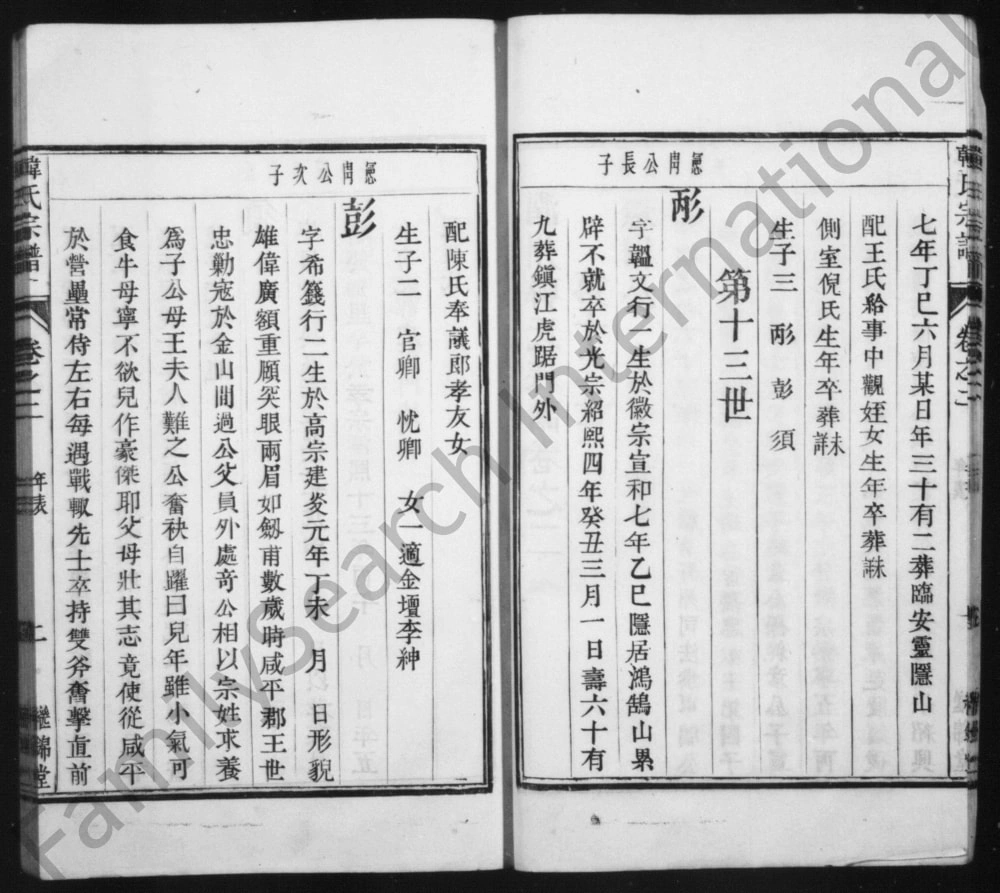 七年丁巳六月某日年三十有二葬臨安靈隱山
配王氏給事中觀姪女生年卒葬誄
側室倪氏生年卒葬誄
生子三 彭 須
第十三世
公長子
字韞文行一生於徽宗宣和七年乙巳隱居鴻鵠山累
辟不就卒於光宗紹熙四年癸丑三月一日壽六十有
九葬鎭江虎踞門外
韓氏宗譜 卷之二
配陳氏奉議郎孝友女
生子二 官卿 忱卿 女一適金壇李紳
公次子
彭
字希籛行二生於高宗建炎元年丁未 月 日形貌
雄偉廣額重頤突眼兩眉如劔甫數歲時咸平郡王世
忠勦寇於金山間過公父員外處奇公相以宗姓求養
爲子公母王夫人難之公奮袂自躍曰兒年雖小氣可
食牛母寧不欲兒作豪傑耶父母壯其志竟使從咸平
於營壘常侍左右每遇戰輙先士卒持雙斧奮擊直前
韓氏宗譜 卷之二 年表 二 錦堂
FamilySearch International